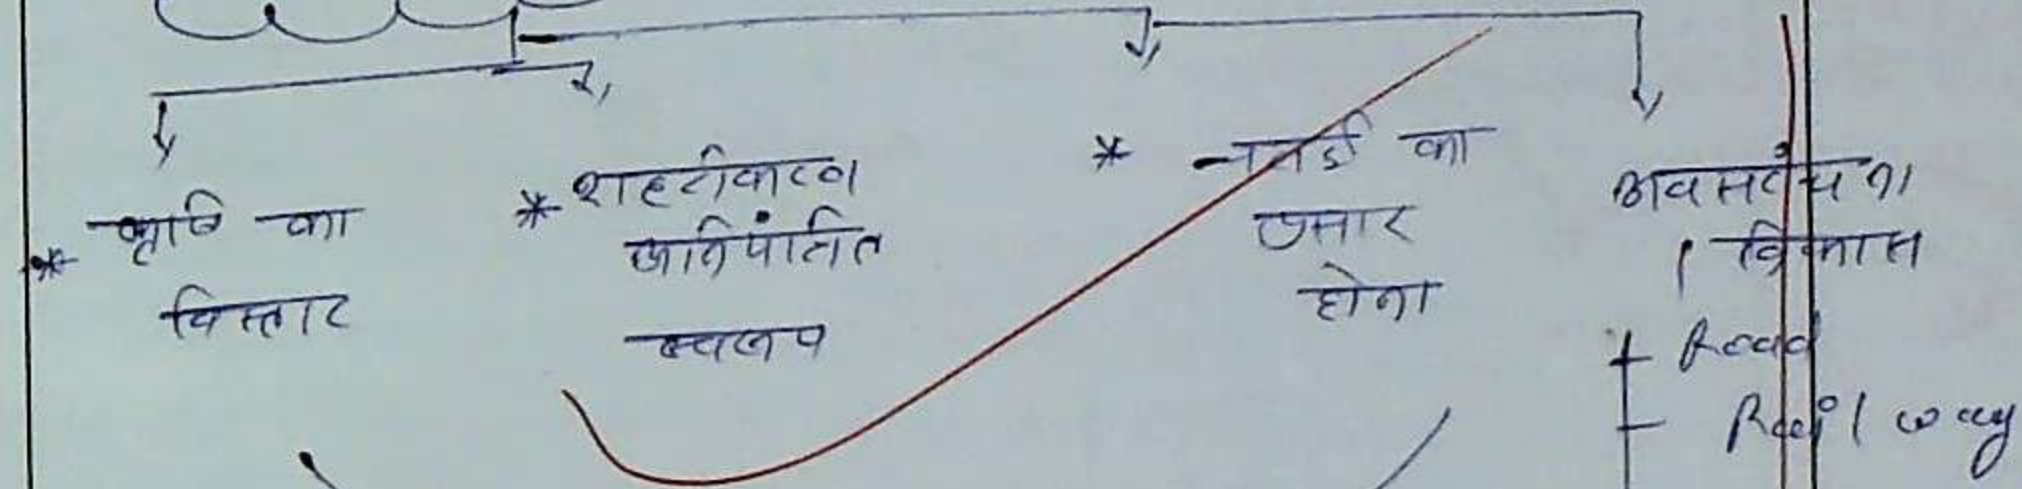 * कृषि का
विस्तार
* शहरीकरण
अनियंत्रित
स्वरूप
* का
प्रसार
होना
अवसंरचना
विकास
Road
Railway